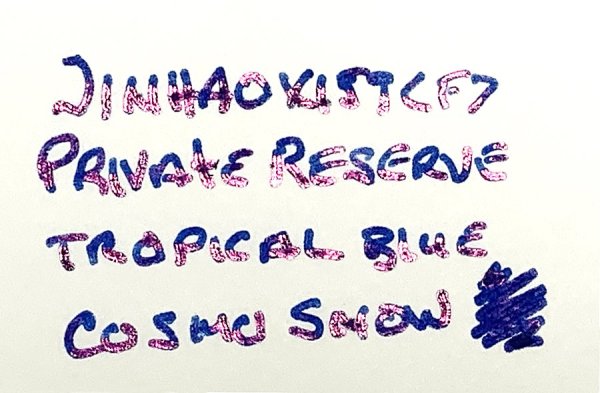 JINHAO X159 <F>
PRIVATE RESERVE
TROPICAL BLUE
COSMO SNOW